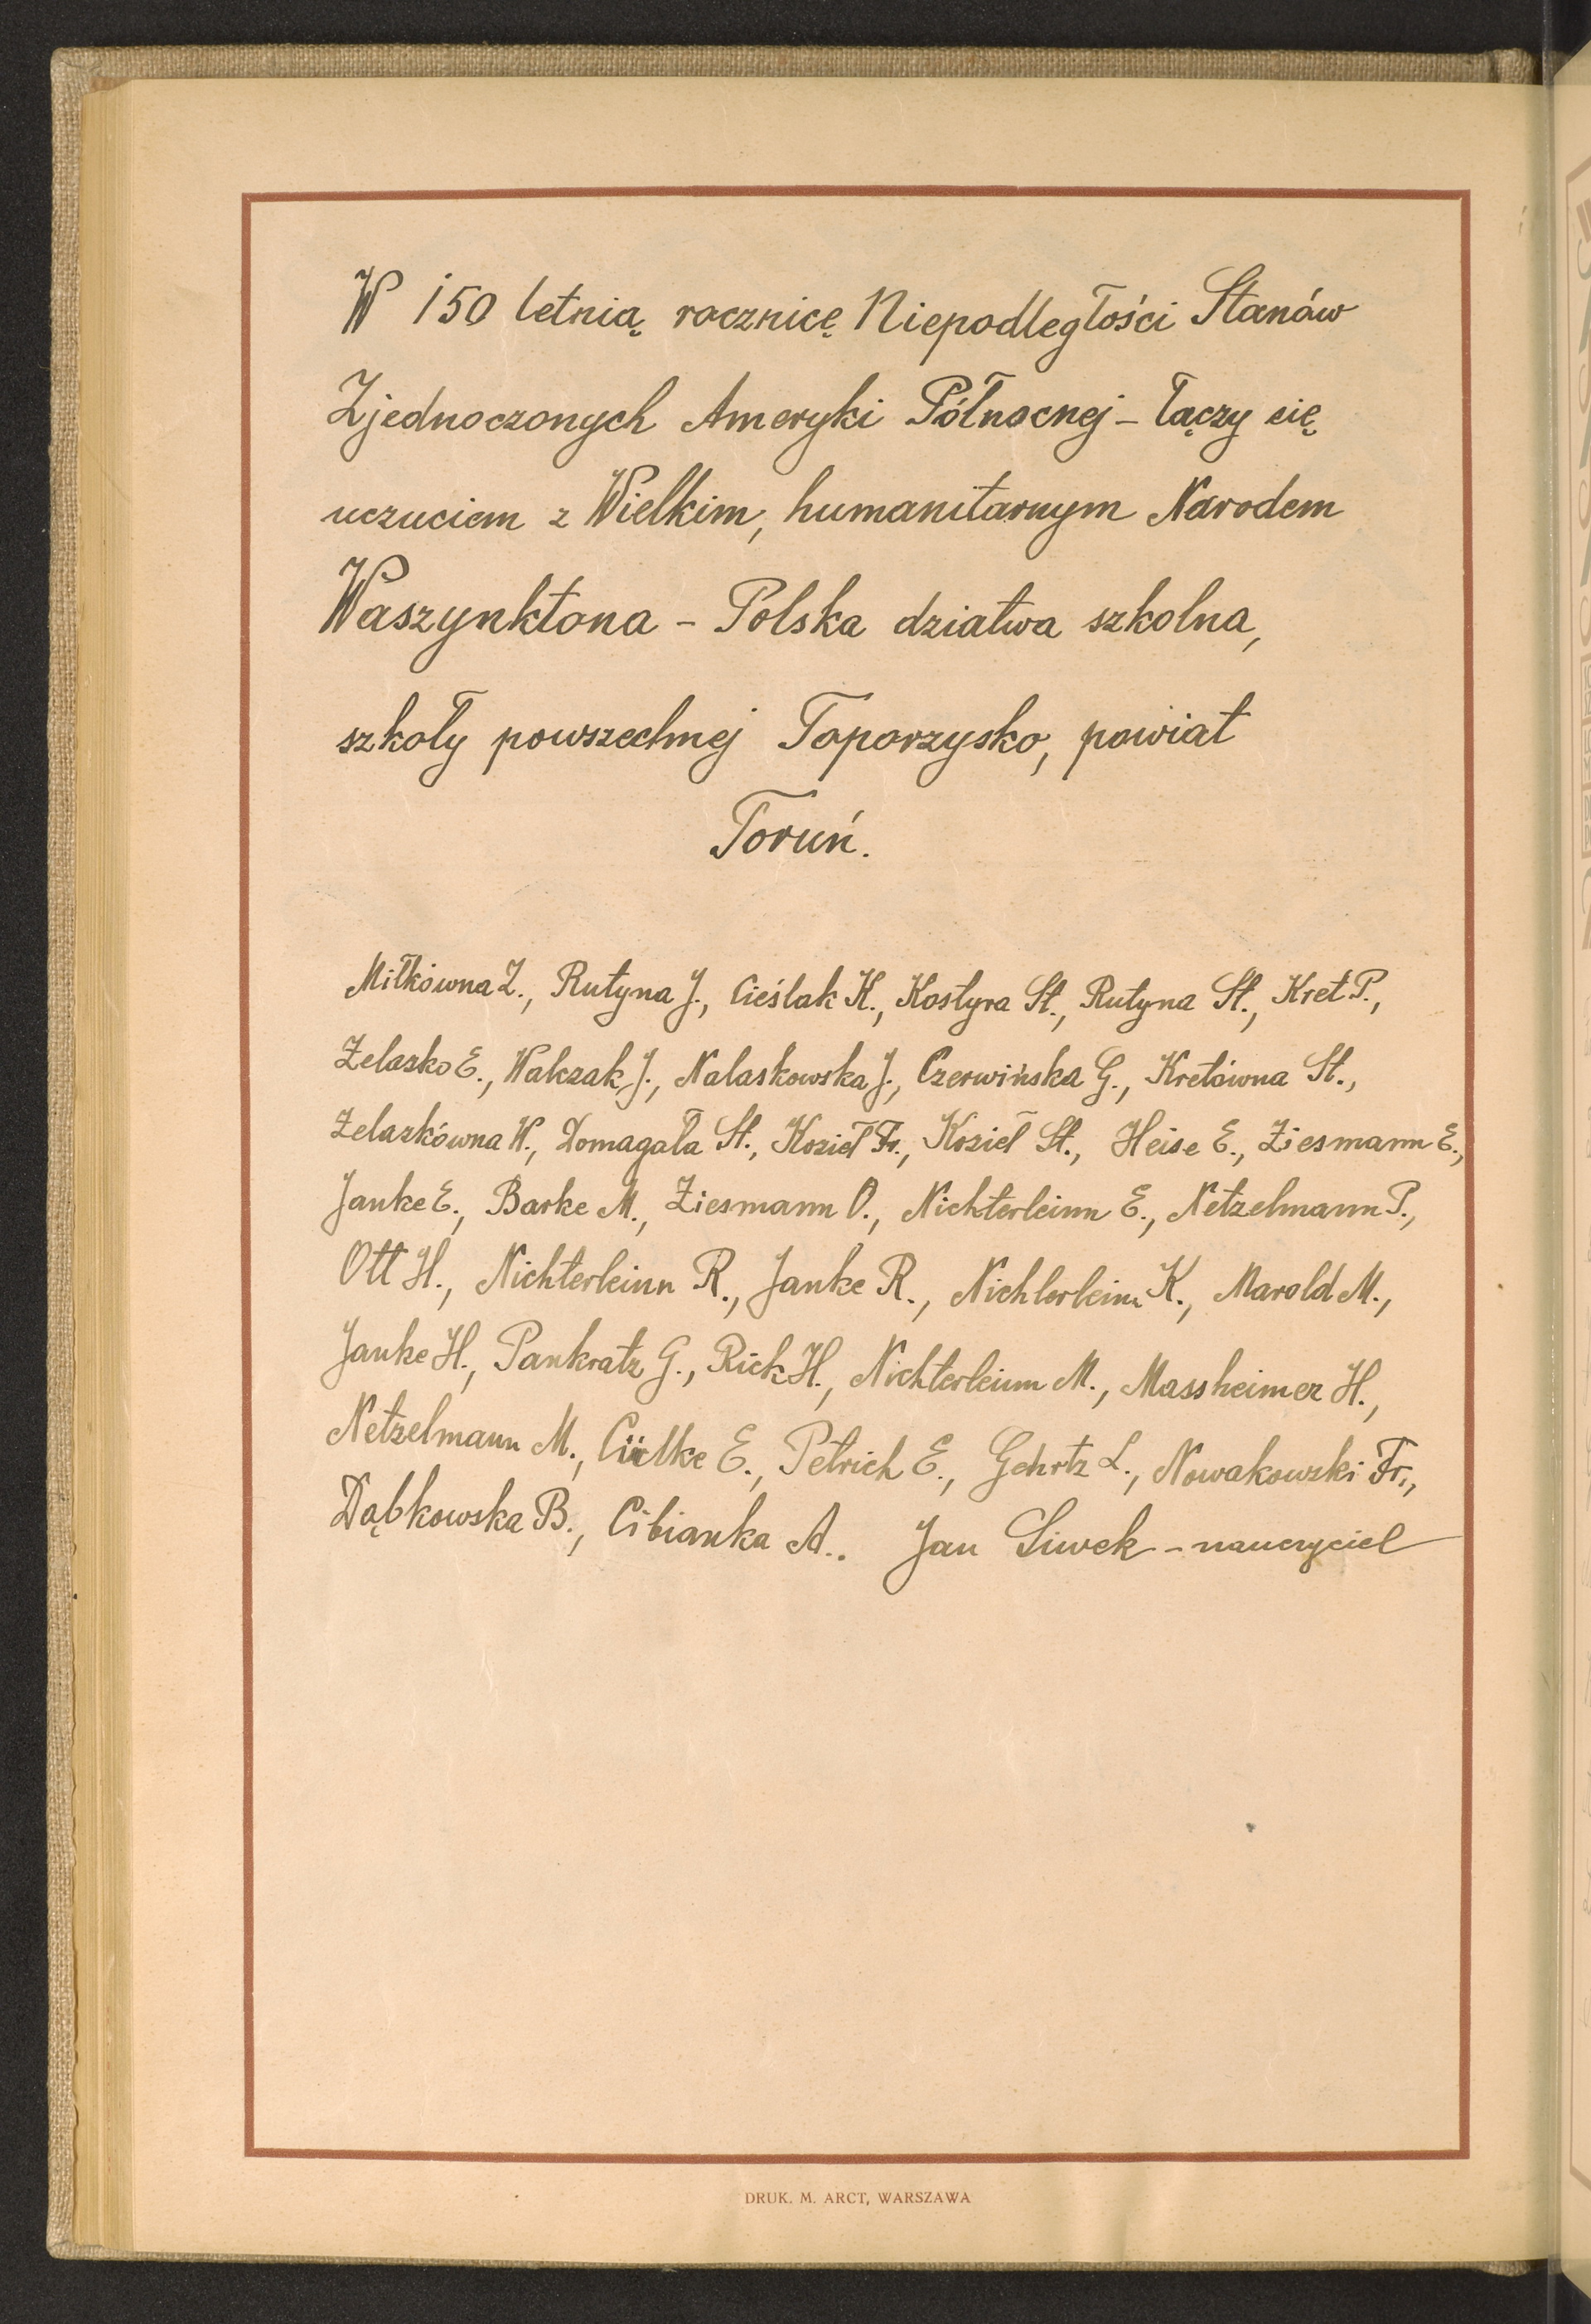 W 150 letnią rocznicę Niepodległości Stanów
Zjednoczonych Ameryki Północnej – łączy się
uczuciem z Wielkim, humanitarnym Narodem
Waszynktona – Polska dziatwa szkolna,
szkoły powszechnej Toporzysko, powiat
Toruń.
Miłkówna Z., Rutyna J., Cieślak K., Kostyra St., Rutyna St., Kret P.,
Żelazko E., Walczak J., Nalaskowska J., Czerwińska G., Kretówna St.,
Żelazkówna W., Domagała St., Kozieł Fr., Kozieł St., Heise E., Ziesmann E.,
Janke E., Barke M., Ziesmann O., Nichterleinn E., Netzelmann P.,
Ott H., Nichterleinn R., Janke R., Nichterleinn K., Marold M.,
Janke H., Pankratz G., Rick H., Nichterleinn M., Massheimer H.,
Netzelmann M., E., Petrich E., Gehrtz L., Nowakowski Fr.,
Dąbkowska B., Cibianka A.. Jan Siwek – nauczyciel
DRUK. M. ARCT, WARSZAWA